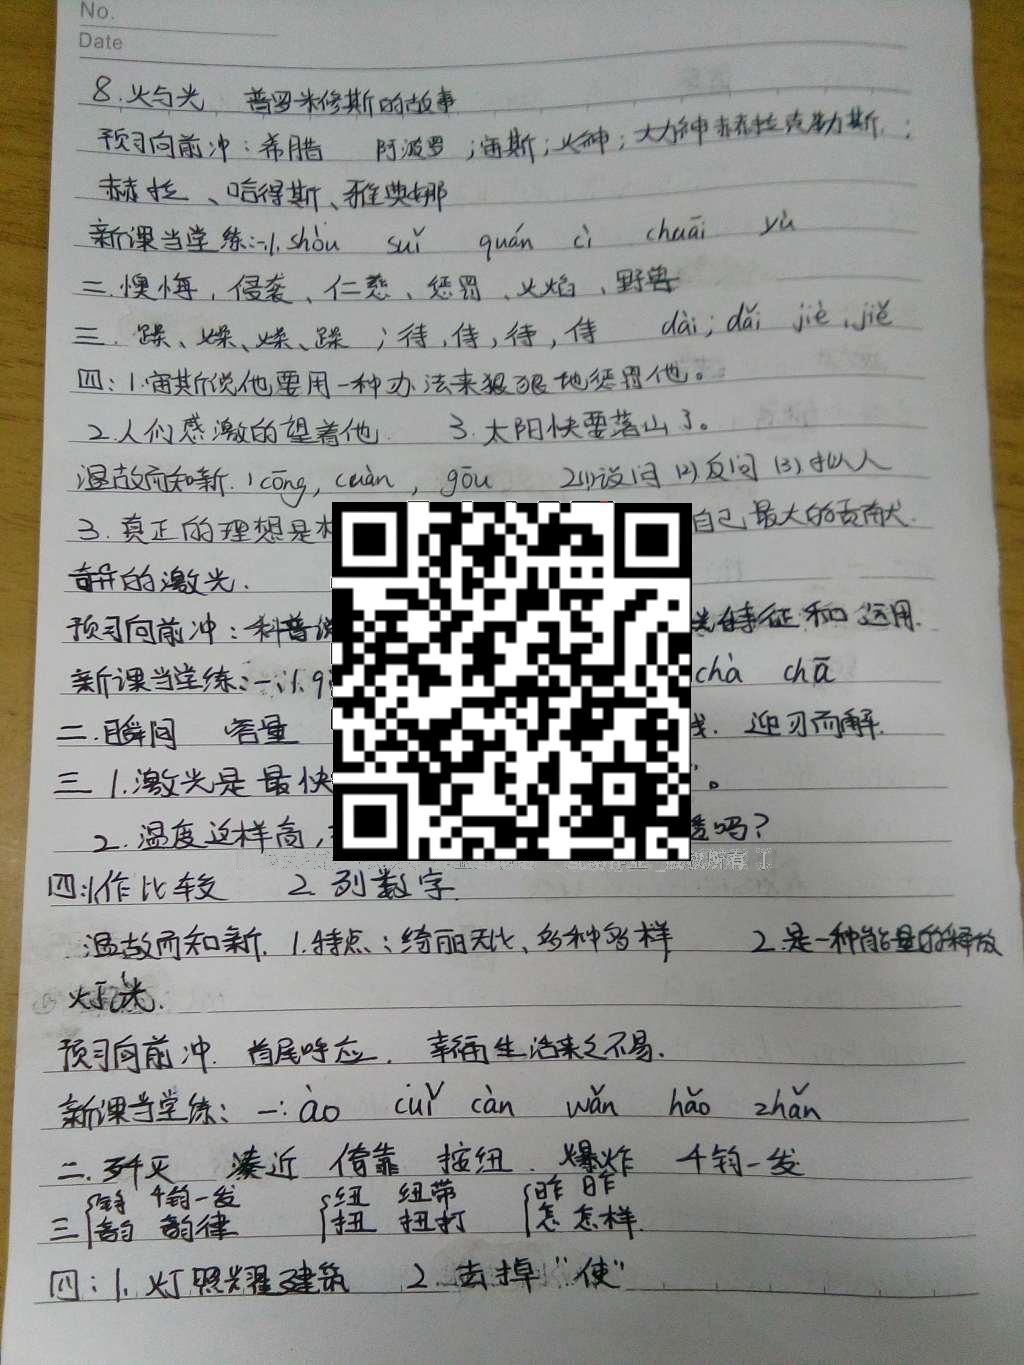 No.
Date
8.火与光 普罗米修斯的故事
预习向前冲：希腊 阿波罗；宙斯；火神；大力神赫拉克勒斯；
赫拉、哈得斯、雅典娜
新课当堂练：一、1.shòu suǐ quán cì chuāi yù
二.懊悔，侵袭、仁慈、惩罚、火焰、野兽
三.躁、燥、燥、躁；待,侍,待,侍 dài；dǎi jiè，jiě
四：1.宙斯说他要用一种办法来狠狠地惩罚他。
2.人们感激的望着他 3.太阳快要落山了。
温故而知新.1cōng，cuàn，gōu 2(1)设问(2)反问(3)拟人
3.真正的理想是 自己最大的贡献.
奇异的激光.
预习向前冲：科普说 特征和运用.
新课当堂练：一：1.g chà chā
二.瞬间 容量 迎刃而解.
三 1.激光是最快 。
2.温度这样高， 吗？
四：1作比较 2.列数字.
温故而知新.1.特点：绮丽无比、多种多样 2.是一种能量的释放
灯光.
预习向前冲.首尾呼应.幸福生活来之不易.
新课当堂练：一：ào cuǐ càn wǎn hǎo zhǎn
二.歼灭 凑近 倚靠 按纽.爆炸 千钧一发
钧 千钧一发 纽 纽带 昨 昨
三 韵 韵律 扭 扭打 怎 怎样.
四：1.灯照耀建筑 2.去掉“使”